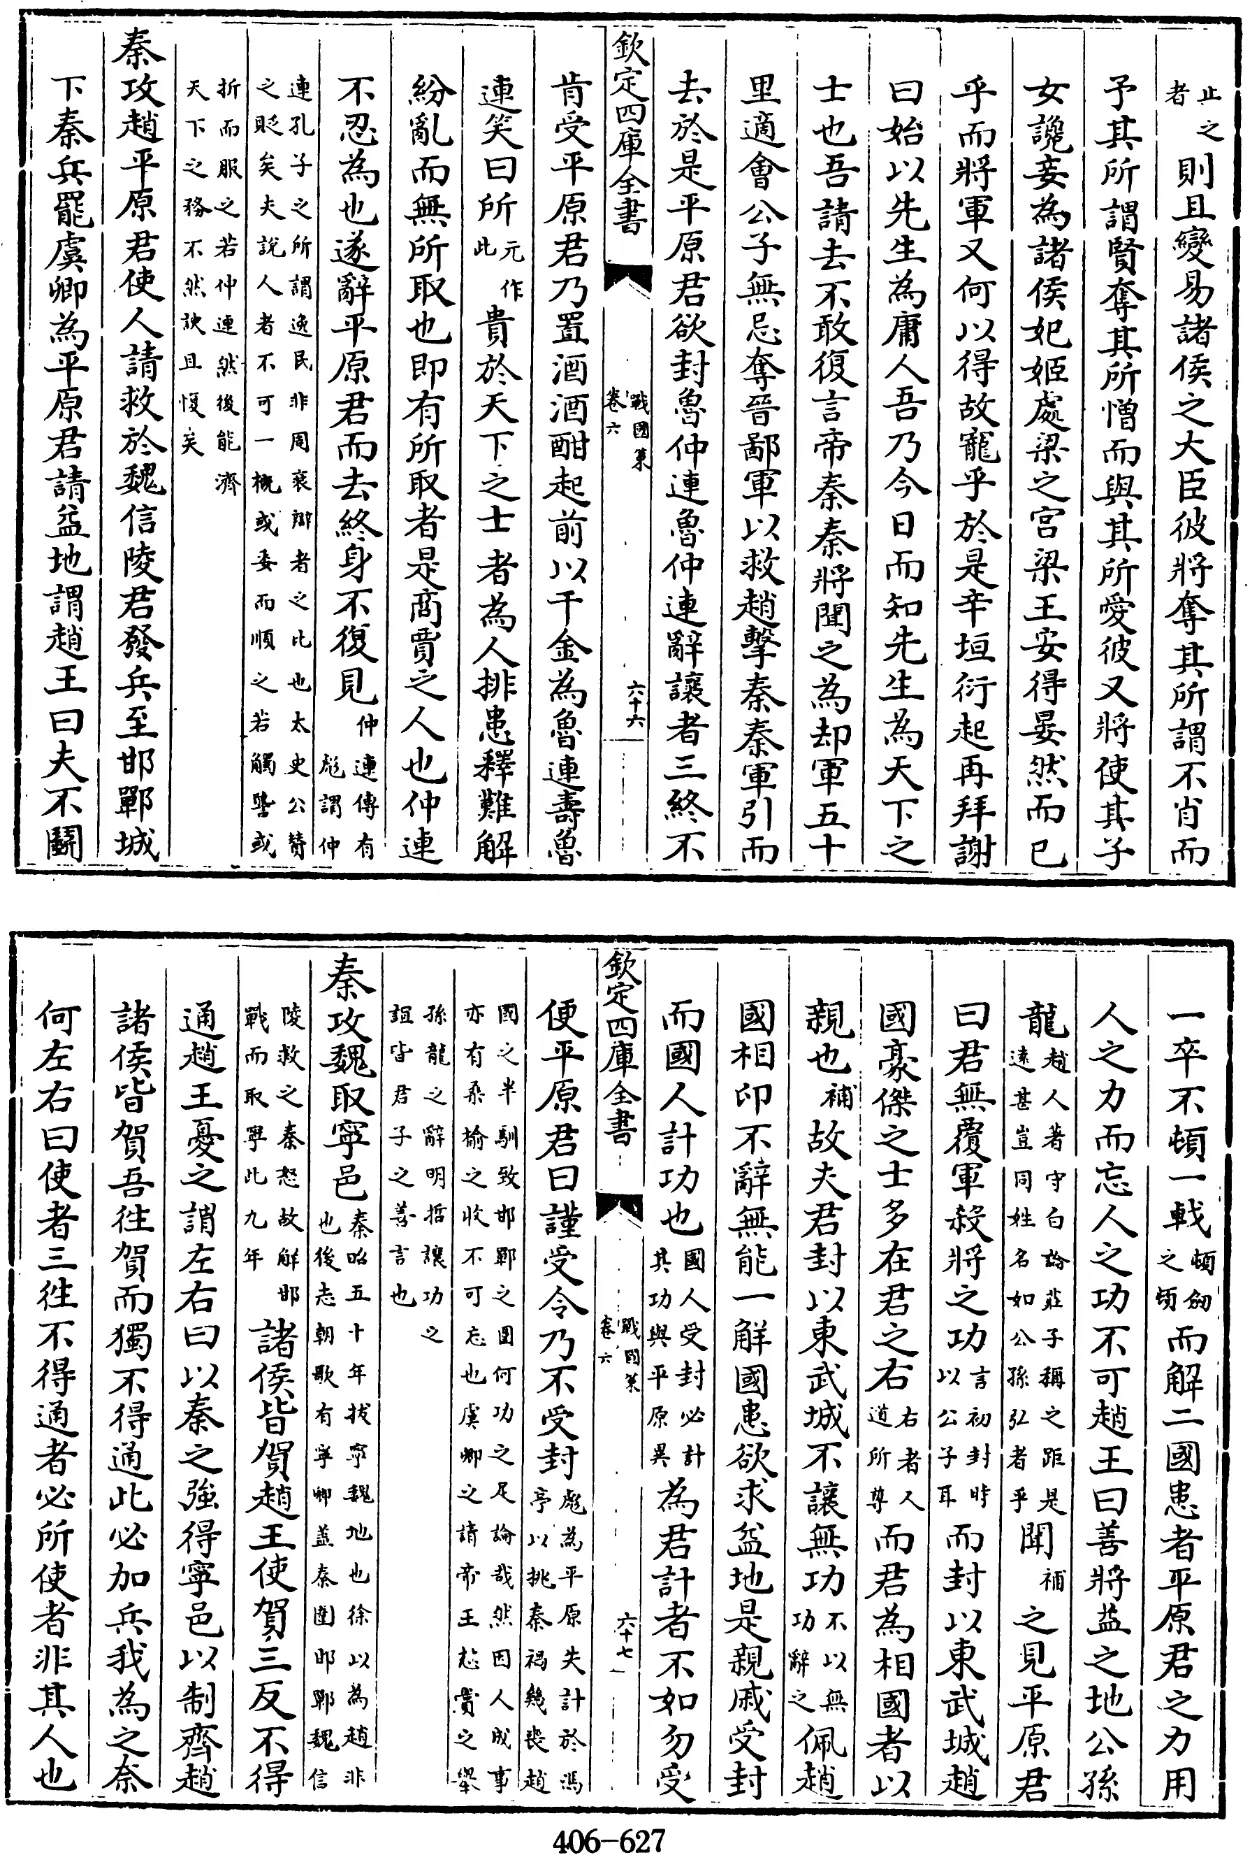 止之者則且變易諸侯之大臣彼將奪其所謂不肖而
予其所謂賢奪其所憎而與其所愛彼又將使其子
女讒妾為諸侯妃姬處梁之宫梁王安得晏然而已
乎而將軍又何以得故寵乎於是辛垣衍起再拜謝
曰始以先生為庸人吾乃今日而知先生為天下之
士也吾請去不敢復言帝秦秦將聞之為却軍五十
里適會公子無忌奪晉鄙軍以救趙擊秦秦軍引而
去於是平原君欲封魯仲連魯仲連辭讓者三終不
欽定四庫全書 戰國策 卷六 六十六
肯受平原君乃置酒酒酣起前以千金為魯連壽魯
連笑曰所元作此貴於天下之士者為人排患釋難解
紛亂而無所取也即有所取者是商賈之人也仲連
不忍為也遂辭平原君而去終身不復見仲連傳有彪謂仲
連孔子之所謂逸民非周衰辯者之比也太史公贊
之貶矣夫說人者不可一概或委而順之若觸讋或
折而服之若仲連然後能濟
天下之務不然諛且愎矣
秦攻趙平原君使人請救於魏信陵君發兵至邯鄲城
下秦兵罷虞卿為平原君請益地謂趙王曰夫不鬭
一卒不頓一戟頓劒之頓而解二國患者平原君之力用
人之力而忘人之功不可趙王曰善將益之地公孫
龍趙人著守白論莊子稱之距是遠甚豈同姓名如公孫弘者乎聞補之見平原君
曰君無覆軍殺將之功言初封時以公子耳而封以東武城趙
國豪傑之士多在君之右右者人道所尊而君為相國者以
親也補故夫君封以東武城不讓無功不以無功辭之佩趙
國相印不辭無能一解國患欲求益地是親戚受封
而國人計功也國人受封必計其功與平原異為君計者不如勿受
欽定四庫全書 戰國策 卷六 六十七
便平原君曰謹受令乃不受封彪為平原失計於馮亭以挑秦禍幾喪趙
國之半馴致邯鄲之圍何功之足論哉然因人成事
亦有桑榆之收不可忘也虞卿之請帝王㤀賞之舉
孫龍之辭明哲讓功之
誼皆君子之善言也
秦攻魏取寧邑秦昭五十年拔寧魏地也徐以為趙非也後志朝歌有寧鄉蓋秦圍邯鄲魏信
陵救之秦怒故解邯戰而取寧此九年諸侯皆賀趙王使賀三反不得
通趙王憂之謂左右曰以秦之強得寧邑以制齊趙
諸侯皆賀吾往賀而獨不得通此必加兵我為之奈
何左右曰使者三往不得通者必所使者非其人也
406-627